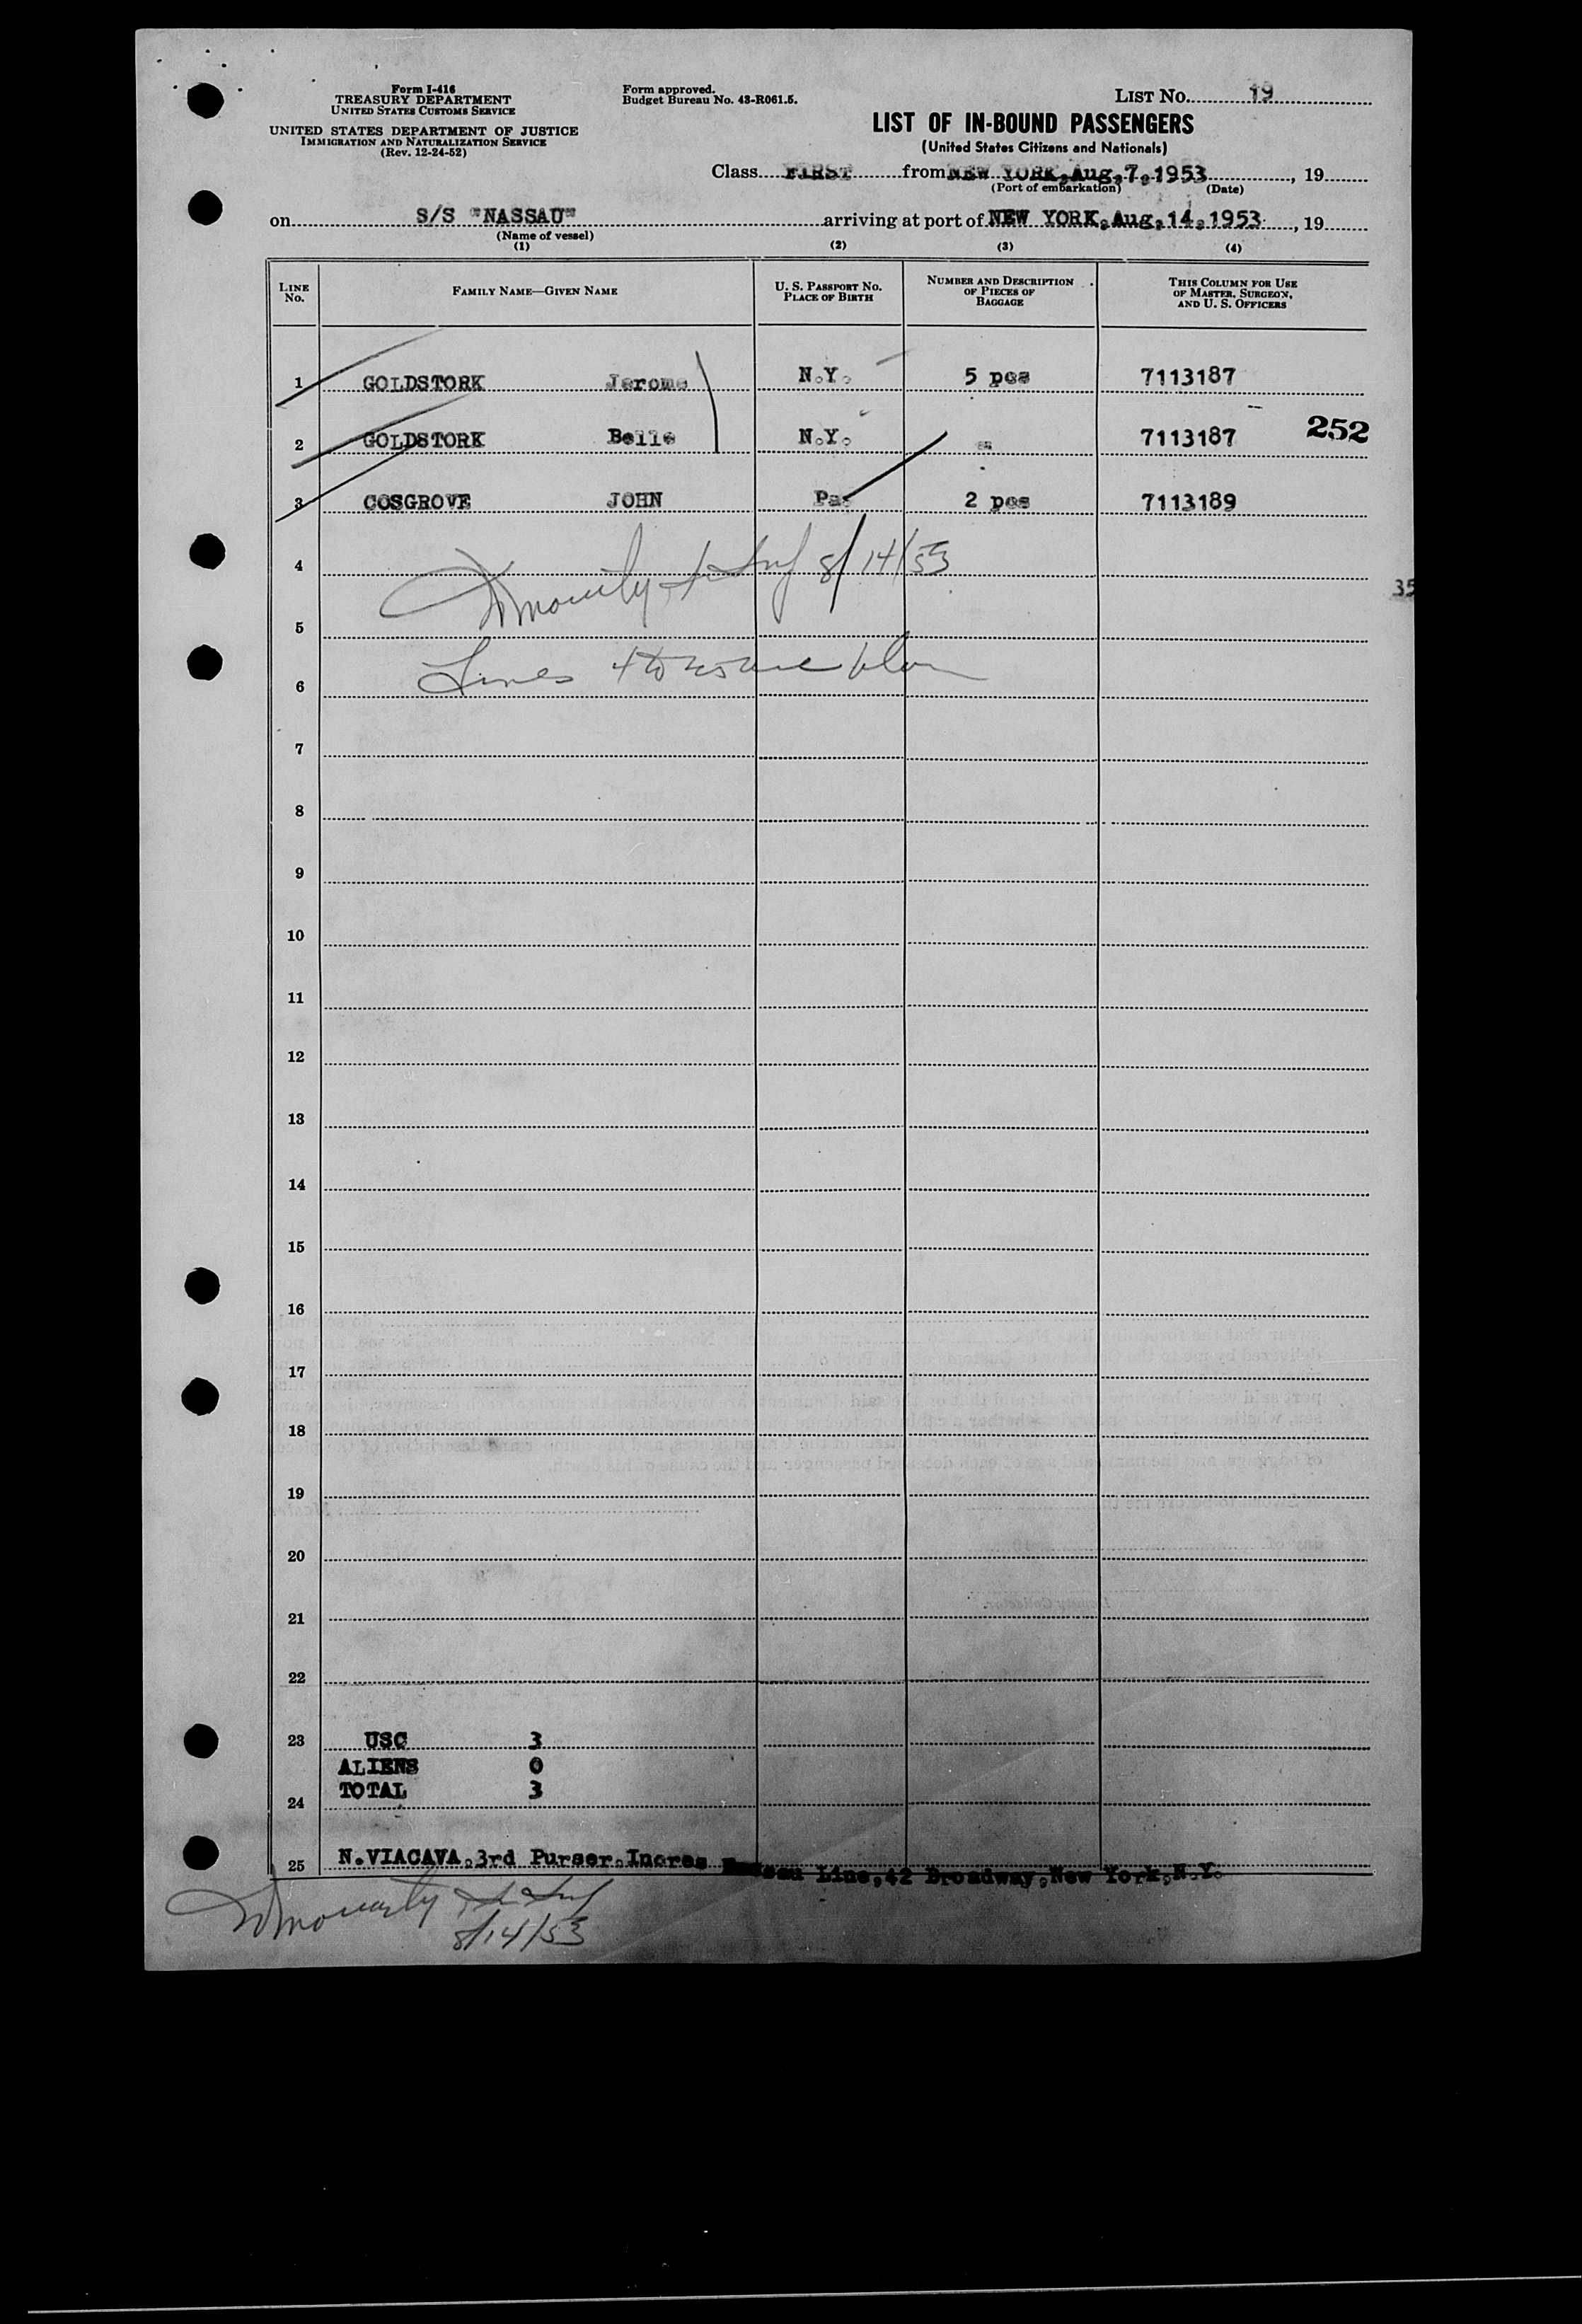 Form I-416
TREASURY DEPARTMENT
UNITED STATES CUSTOMS SERVICE
UNITED STATES DEPARTMENT OF JUSTICE
IMMIGRATION AND NATURALIZATION SERVICE
(Rev. 12-24-52)
Form approved.
Budget Bureau No. 43-R061.5.
LIST No. 19
LIST OF IN-BOUND PASSENGERS
(United States Citizens and Nationals)
Class FIRST from NEW YORK, Aug, 7, 1953, 19
(Port of embarkation) (Date)
on S/S "NASSAU" arriving at port of NEW YORK, Aug, 14, 1953, 19
(Name of vessel)
(1) (2) (3) (4)
LINE No. FAMILY NAME—GIVEN NAME U. S. PASSPORT NO. PLACE OF BIRTH NUMBER AND DESCRIPTION OF PIECES OF BAGGAGE THIS COLUMN FOR USE OF MASTER, SURGEON, AND U. S. OFFICERS
1 GOLDSTORK Jerome N.Y. 5 pcs 7113187
2 GOLDSTORK Belle N.Y. 7113187 252
3 COSGROVE JOHN Pa. 2 pcs 7113189
35
4 8/14/53
5
Lines 4 to 25
6
7
8
9
10
11
12
13
14
15
16
17
18
19
20
21
22
23 USC 3
ALIENS 0
TOTAL 3
24
25 N.VIACAVA, 3rd Purser, Incres Nassau Line, 42 Broadway, New York, N.Y.
8/14/53